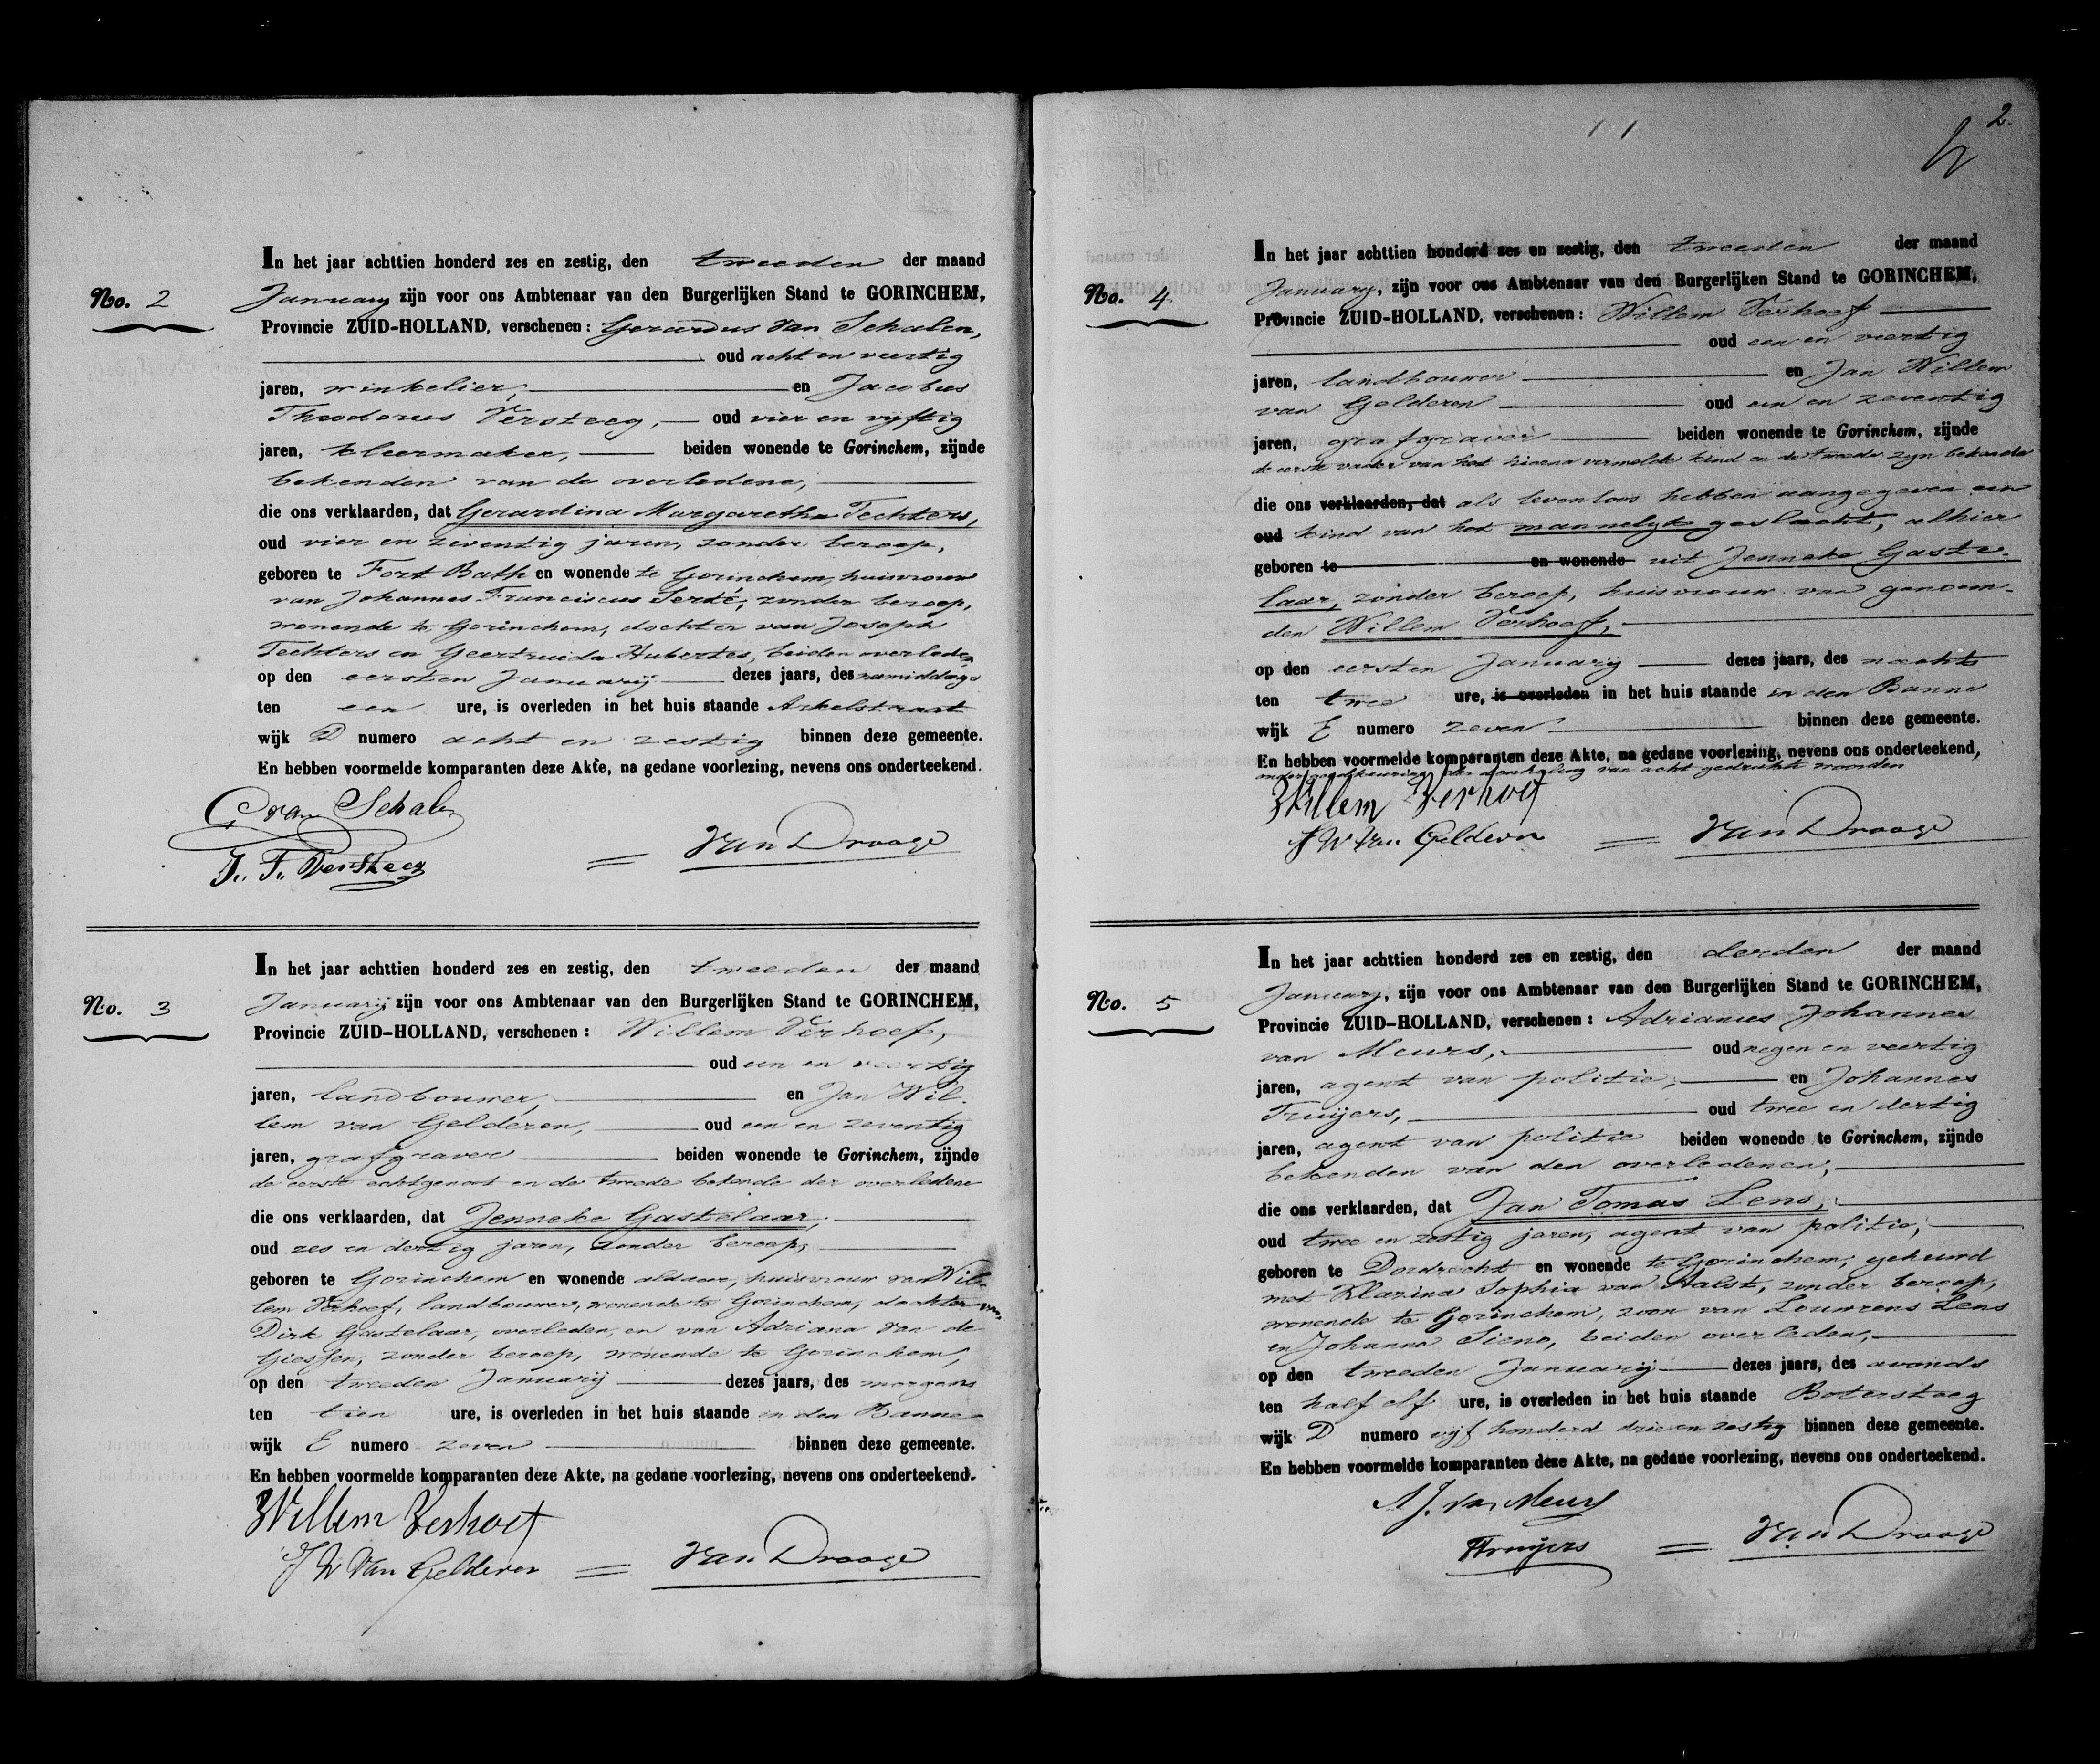 No. 2
In het jaar achttien honderd zes en zestig, den tweeden der maand
January zijn voor ons Ambtenaar van den Burgerlijken Stand te GORINCHEM,
Provincie ZUID-HOLLAND, verschenen: Gerardus van Schalen,
oud acht en veertig
jaren, winkelier, en Jacobus
Theodorus Versteeg, oud vier en vyftig
jaren, kleermaker, beiden wonende te Gorinchem, zijnde
bekenden van de overledene,
die ons verklaarden, dat Gerardina Margaretha Techters,
oud vier en zeventig jaren, zonder beroep,
geboren te Fort Bath en wonende te Gorinchem, huisvrouw
van Johannes Franciscus Serté, zonder beroep,
wonende te Gorinchem, dochter van Joseph
Techters en Geertruida Hubertes, beiden overleden
op den eersten January dezes jaars, des namiddags
ten een ure, is overleden in het huis staande Arkelstraat
wijk D numero acht en zestig binnen deze gemeente.
En hebben voormelde komparanten deze Akte, na gedane voorlezing, nevens ons onderteekend.
G van Schalen
J. T. Versteeg
Van Drooge
No. 3
In het jaar achttien honderd zes en zestig, den tweeden der maand
January zijn voor ons Ambtenaar van den Burgerlijken Stand te GORINCHEM,
Provincie ZUID-HOLLAND, verschenen: Willem Verhoef,
oud een en veertig
jaren, landbouwer, en Jan Wil-
lem van Gelderen, oud een en zeventig
jaren, grafgraver beiden wonende te Gorinchem, zijnde
de eerste echtgenoot en de tweede bekende der overledene
die ons verklaarden, dat Jenneke Gastelaar,
oud zes en dertig jaren, zonder beroep,
geboren te Gorinchem en wonende aldaar, huisvrouw van Wil-
lem Verhoef, landbouwer, wonende te Gorinchem, dochter van
Dirk Gastelaar, overleden, en van Adriana van de
Giessen, zonder beroep, wonende te Gorinchem,
op den tweeden January dezes jaars, des morgens
ten tien ure, is overleden in het huis staande in den Banne
wijk E numero zeven binnen deze gemeente.
En hebben voormelde komparanten deze Akte, na gedane voorlezing, nevens ons onderteekend.
Willem Verhoef
J W Van Gelderen
Van Drooge
2.
No. 4
In het jaar achttien honderd zes en zestig, den tweeden der maand
January, zijn voor ons Ambtenaar van den Burgerlijken Stand te GORINCHEM,
Provincie ZUID-HOLLAND, verschenen: Willem Verhoef
oud een en veertig
jaren, landbouwer en Jan Willem
van Gelderen oud een en zeventig
jaren, grafgraver beiden wonende te Gorinchem, zijnde
de eerste vader van het hierna vermelde kind en de tweede zijn bekende
die ons verklaarden, dat als levenloos hebben aangegeven een
oud kind van het mannelyk geslacht, alhier
geboren te en wonende uit Jenneke Gaste-
laar, zonder beroep, huisvrouw van genoem-
den Willem Verhoef,
op den eersten January dezes jaars, des nachts
ten twee ure, is overleden in het huis staande in den Banne
wijk E numero zeven binnen deze gemeente.
En hebben voormelde komparanten deze Akte, na gedane voorlezing, nevens ons onderteekend,
onder goedkeuring der doorhaling van acht gedrukte woorden
Willem Verhoef
J W Van Gelderen
Van Drooge
No. 5
In het jaar achttien honderd zes en zestig, den derden der maand
January, zijn voor ons Ambtenaar van den Burgerlijken Stand te GORINCHEM,
Provincie ZUID-HOLLAND, verschenen: Adrianus Johannes
van Meurs, oud negen en veertig
jaren, agent van politie, en Johannes
Truijers, oud twee en dertig
jaren, agent van politie beiden wonende te Gorinchem, zijnde
bekenden van den overledenen,
die ons verklaarden, dat Jan Tomas Lens,
oud twee en zestig jaren, agent van politie,
geboren te Dordrecht en wonende te Gorinchem, gehuwd
met Klazina Sophia van Aalst, zonder beroep,
wonende te Gorinchem, zoon van Louwrens Lens
en Johanna Siena, beiden overleden,
op den tweeden January dezes jaars, des avonds
ten half elf ure, is overleden in het huis staande Botersteeg
wijk D numero vijf honderd drie en zestig binnen deze gemeente.
En hebben voormelde komparanten deze Akte, na gedane voorlezing, nevens ons onderteekend.
A J. van Meurs
Truijers
Van Drooge